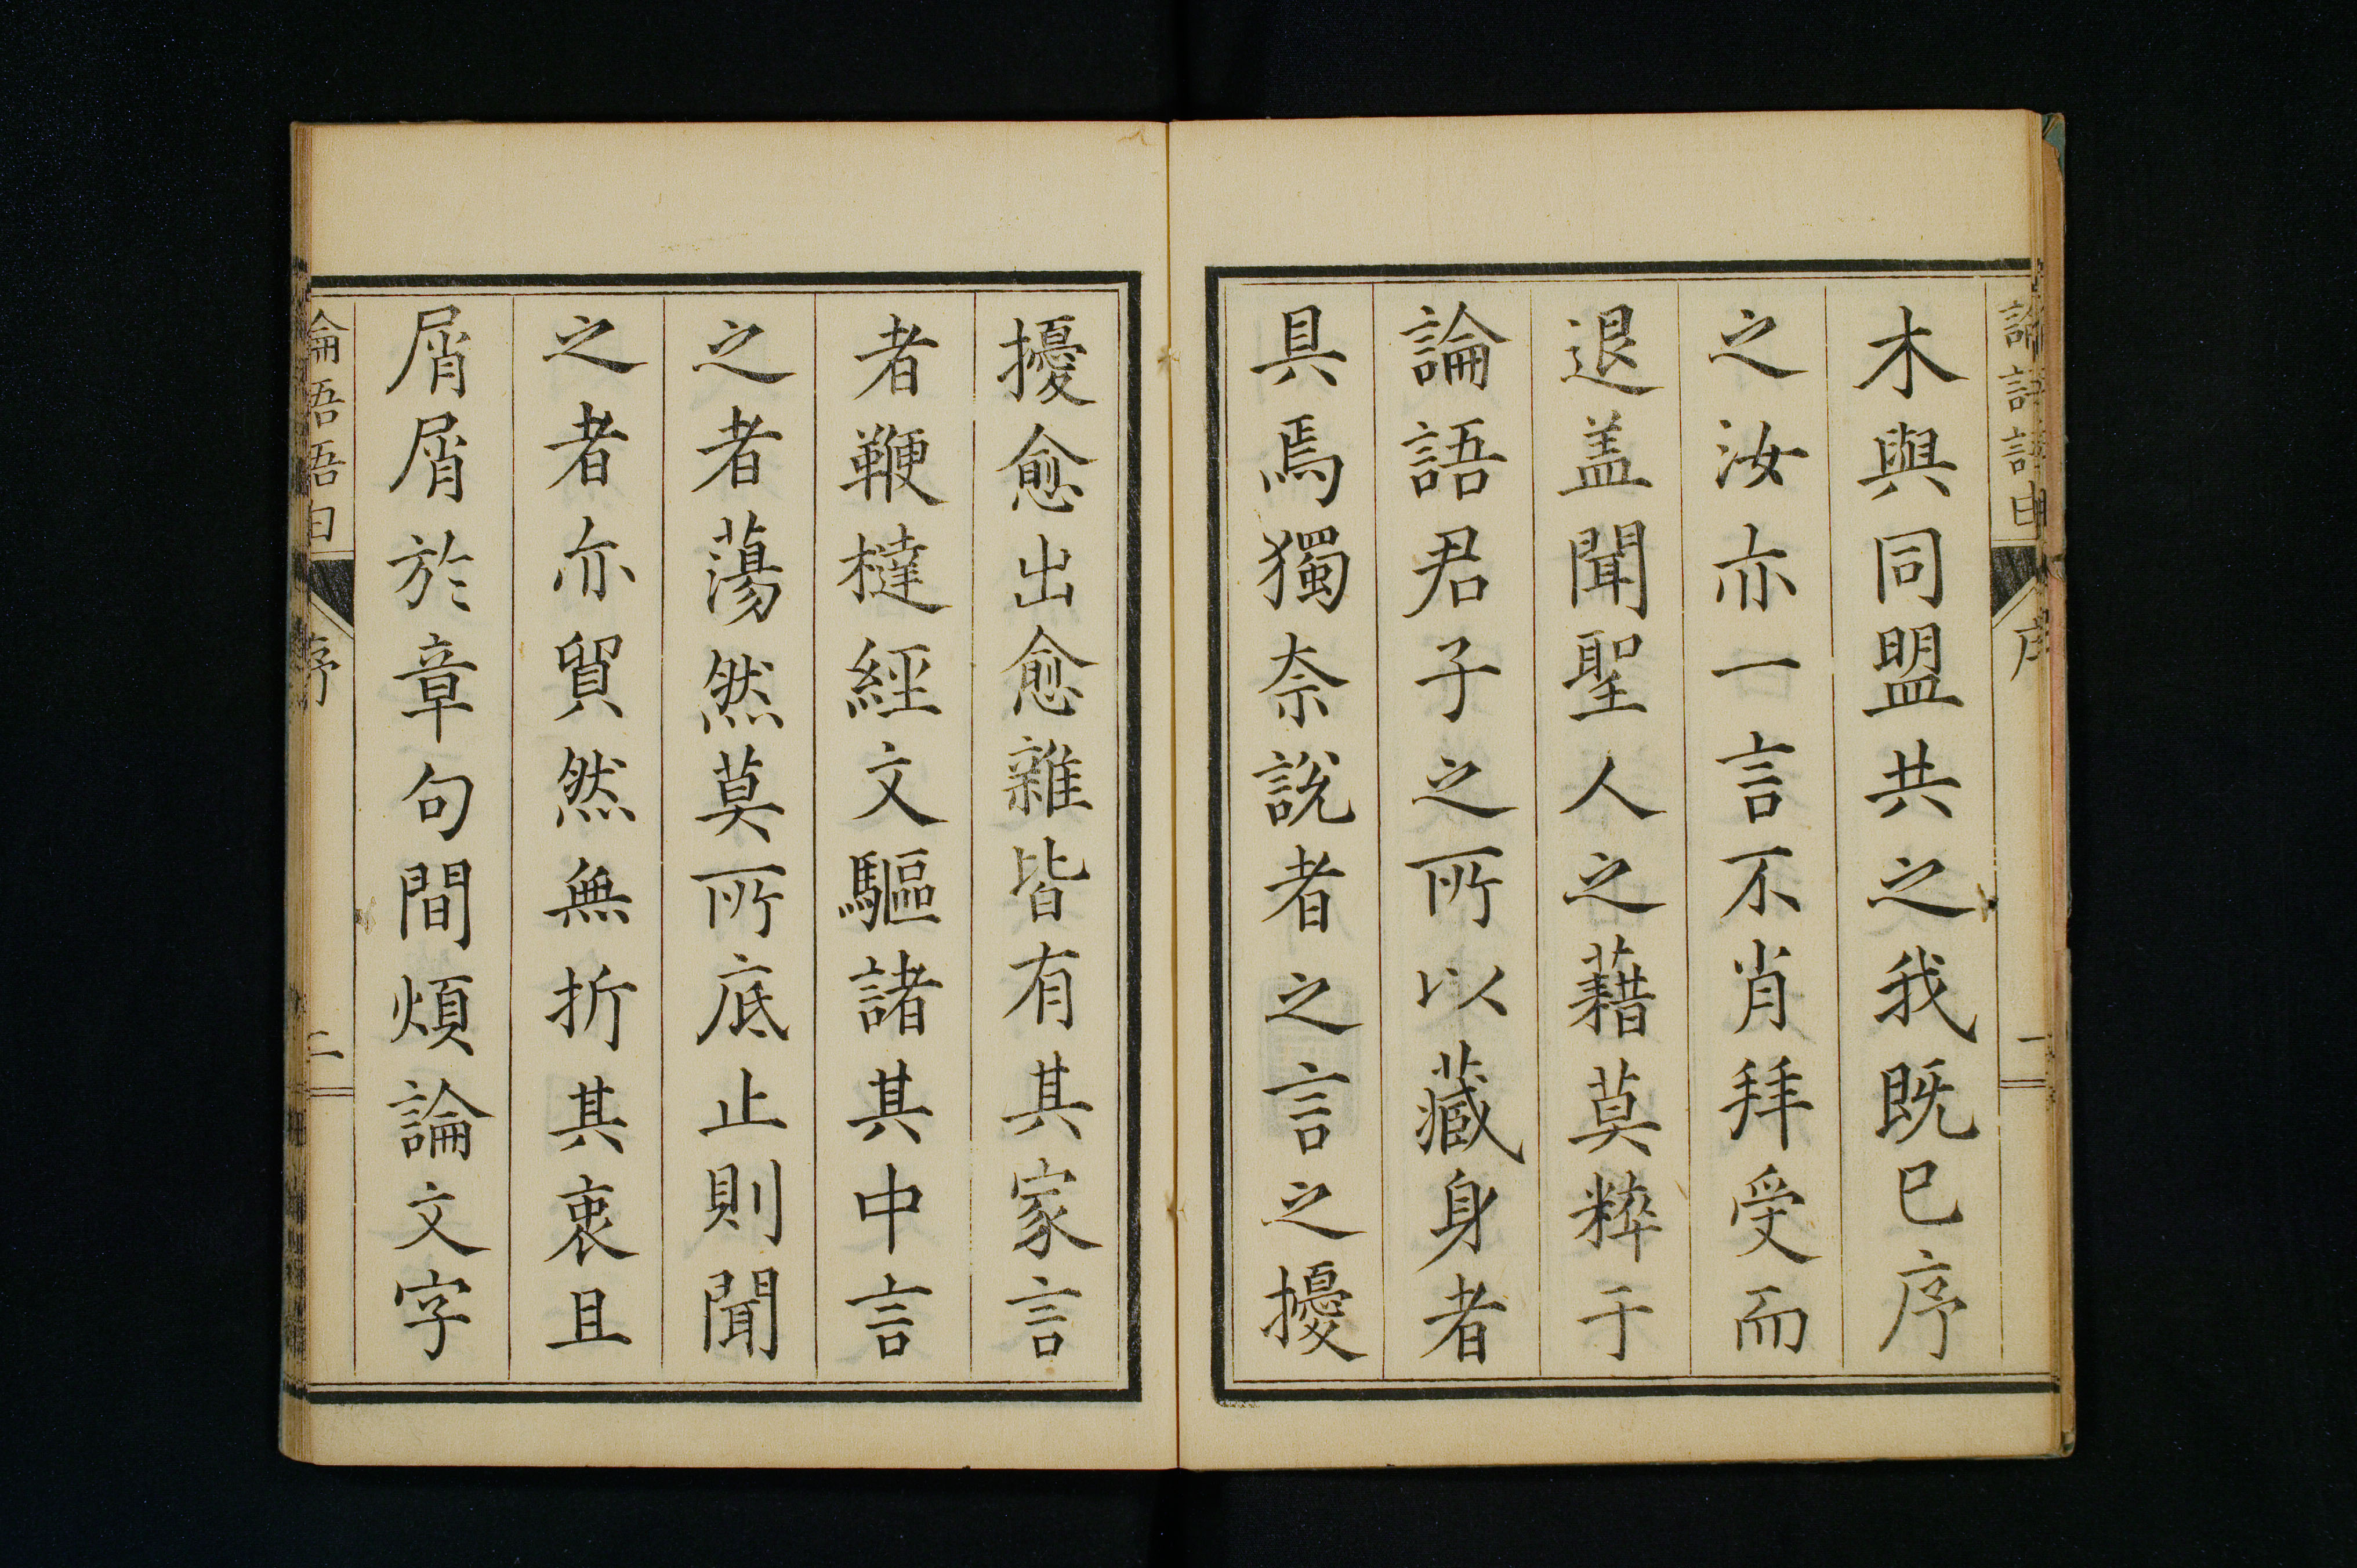 木與同盟共之我既已序
之汝亦一言不肖拜受而
退盖聞聖人之藉莫粹于
論語君子之所以藏身者
具焉獨奈說者之言之擾
擾愈出愈雜皆有其家言
者鞭撻經文驅諸其中言
之者蕩然莫所底止則聞
之者亦貿然無折其衷且
屑屑於章句間煩論文字
序
二